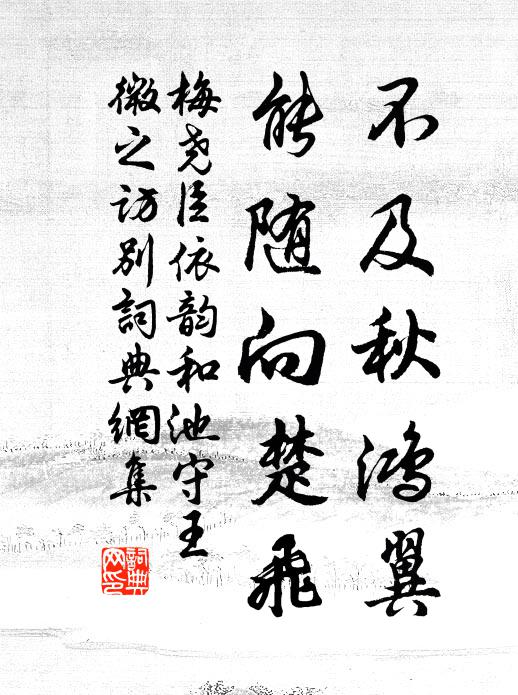 不及秋鸿翼
能随向楚飛
梅尧臣依韵和池守王
微之访别詞典網集
詞典网印